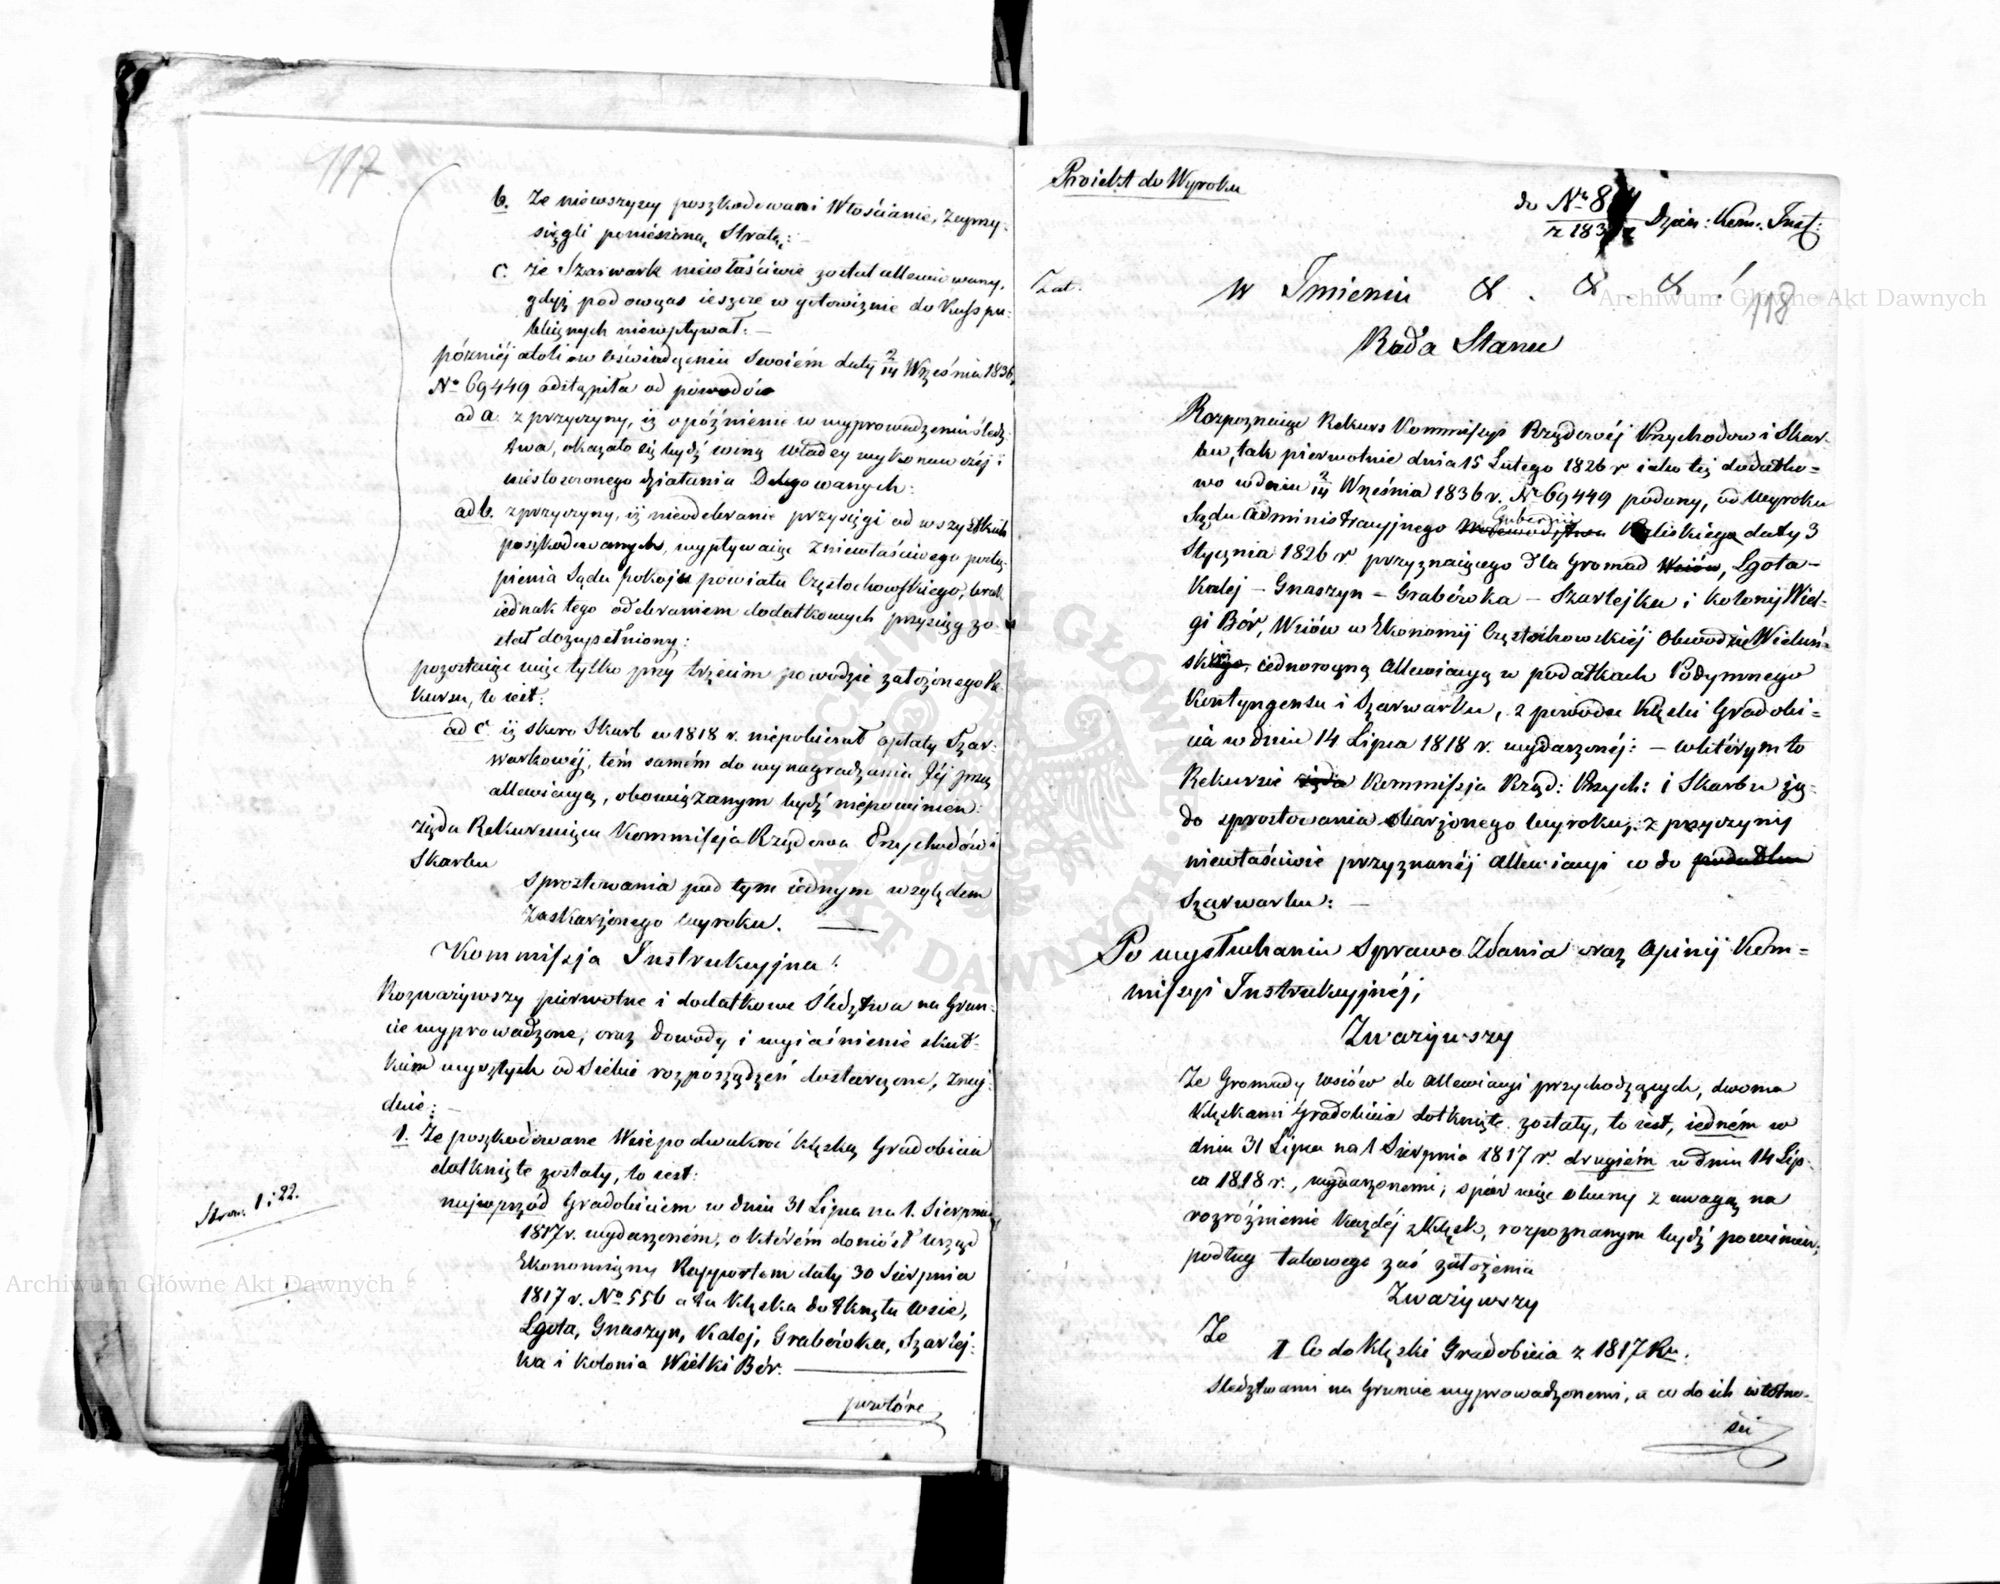 117
b. Że niewszyscy poszkodowani Włościanie, zaprzy-
sięgli poniesioną Stratę: —
c. że Szarwark niewłaściwie został allewiowany,
gdyż podówczas ieszcze w gotowiznie do Kass pu-
blicznych niewpływał. —
później atoli w oświadczeniu Swoiém daty 2/14 Września 1836
No 69449 odstąpiła od powodów
ad a. z przyczyny, iż opóźnienie w wyprowadzeniu śledz-
twa, okazało się bydź winą Władzy wykonawczéj i
niestosownego działania Delegowanych:
ad b. z przyczyny, iż nieodebranie przysięgi od wszystkich
poszkodowanych, wypływaiąc z niewłaściwego postą-
pienia Sądu pokoju powiatu Częstochowskiego, brak
iednak tego odebraniem dodatkowych przysiąg zo-
stał dozupełniony:
pozostaiąc więc tylko przy trzecim powodzie założonego Re-
kursu, to iest:
ad c iż skoro Skarb w 1818 r. niepobierał opłaty Szar-
warkowéj, tém samém do wynagradzania Jéj przez
allewiacyą, obowiązanym bydź niepowinien:
żąda Rekuruiąca Kommissja Rządowa Przychodów i
Skarbu
sprostowania pod tym iednym względem
zaskarżonego wyroku. —
Kommissja Instrukcyjna:
Rozważywszy pierwotne i dodatkowe Śledztwa na Grun-
cie wyprowadzone, oraz dowody i wyiaśnienie skut-
kiem wyszłych od Siebie rozporządzeń dostarczone, znaj-
duie: —
1. Że poszkodowane Wsie po dwakroć klęską Gradobicia
dotknięte zostały, to iest:
Stron. 1 i 22.
najwprzód Gradobiciem w dniu 31 Lipca na 1. Sierpnia
1817 r. wydarzoném, o którém doniósł Urząd
Ekonomiczny Rapportem daty 30 Sierpnia
1817 r. No 556 a ta klęska dotknęła wsie,
Lgota, Gnaszyn, Kalej, Grabówka, Szarlej-
ka i kolonia Wielki Bór. —
powtóre
Proiekt do Wyroku
do Nr 8
z 183 Dzien: Kom: Inst:
118
Zał.
W Imieniu & . & . & .
Rada Stanu
Rozpoznaiąc Rekurs Kommissyi Rządowéj Przychodow i Skar-
bu, tak pierwotnie dnia 15 Lutego 1826 r iako też dodatko-
wo w dniu 2/14 Września 1836 r. No 69449 podany, od wyroku
Gubernii
Sądu Administracyjnego Województwa Kaliskiego daty 3
Stycznia 1826 r. przyznaiącego dla Gromad Wsiów, Lgota —
Kalej — Gnaszyn — Grabówka — Szarlejka i kolonij Wiel-
gi Bór, Wsiów w Ekonomij Częstochowskiéj Obwodzie Wieluń-
skiego, iednoroczną Allewiacyą w podatkach Podymnego
Kontyngensu i Szarwarku, z powodu Klęski Gradobi-
cia w dniu 14 Lipca 1818 r. wydarzonéj: — w którym to
Rekursie żąda Kommissja Rząd: Przych: i Skarbu żą-
da sprostowania skarżonego wyroku, z przyczyny
niewłaściwie przyznanéj allewiacyi co do podatku
Szarwarku: —
Po wysłuchaniu Sprawozdania oraz Opinij Kom-
missyi Instrukcyjnéj;
Zważywszy
Że Gromady wsiów do allewiacyi przychodzących, dwoma
Klęskami Gradobicia dotknięte zostały, to iest, iedném w
dniu 31 Lipca na 1 Sierpnia 1817 r. drugiém w dniu 14 Lip-
ca 1818 r., wydarzonemi; spór więc obecny z uwagą na
rozróżnienie każdéj z Klęsk, rozpoznanym bydź powinien,
podług takowego zaś założenia
Zważywszy
Że
I Co do Klęski Gradobicia z 1817 Ru.
Śledztwami na Gruncie wyprowadzonemi, a co do ich istotno-
ści
Archiwum Główne Akt Dawnych
Archiwum Główne Akt Dawnych
ARCHIWUM GŁÓWNE AKT DAWNYCH